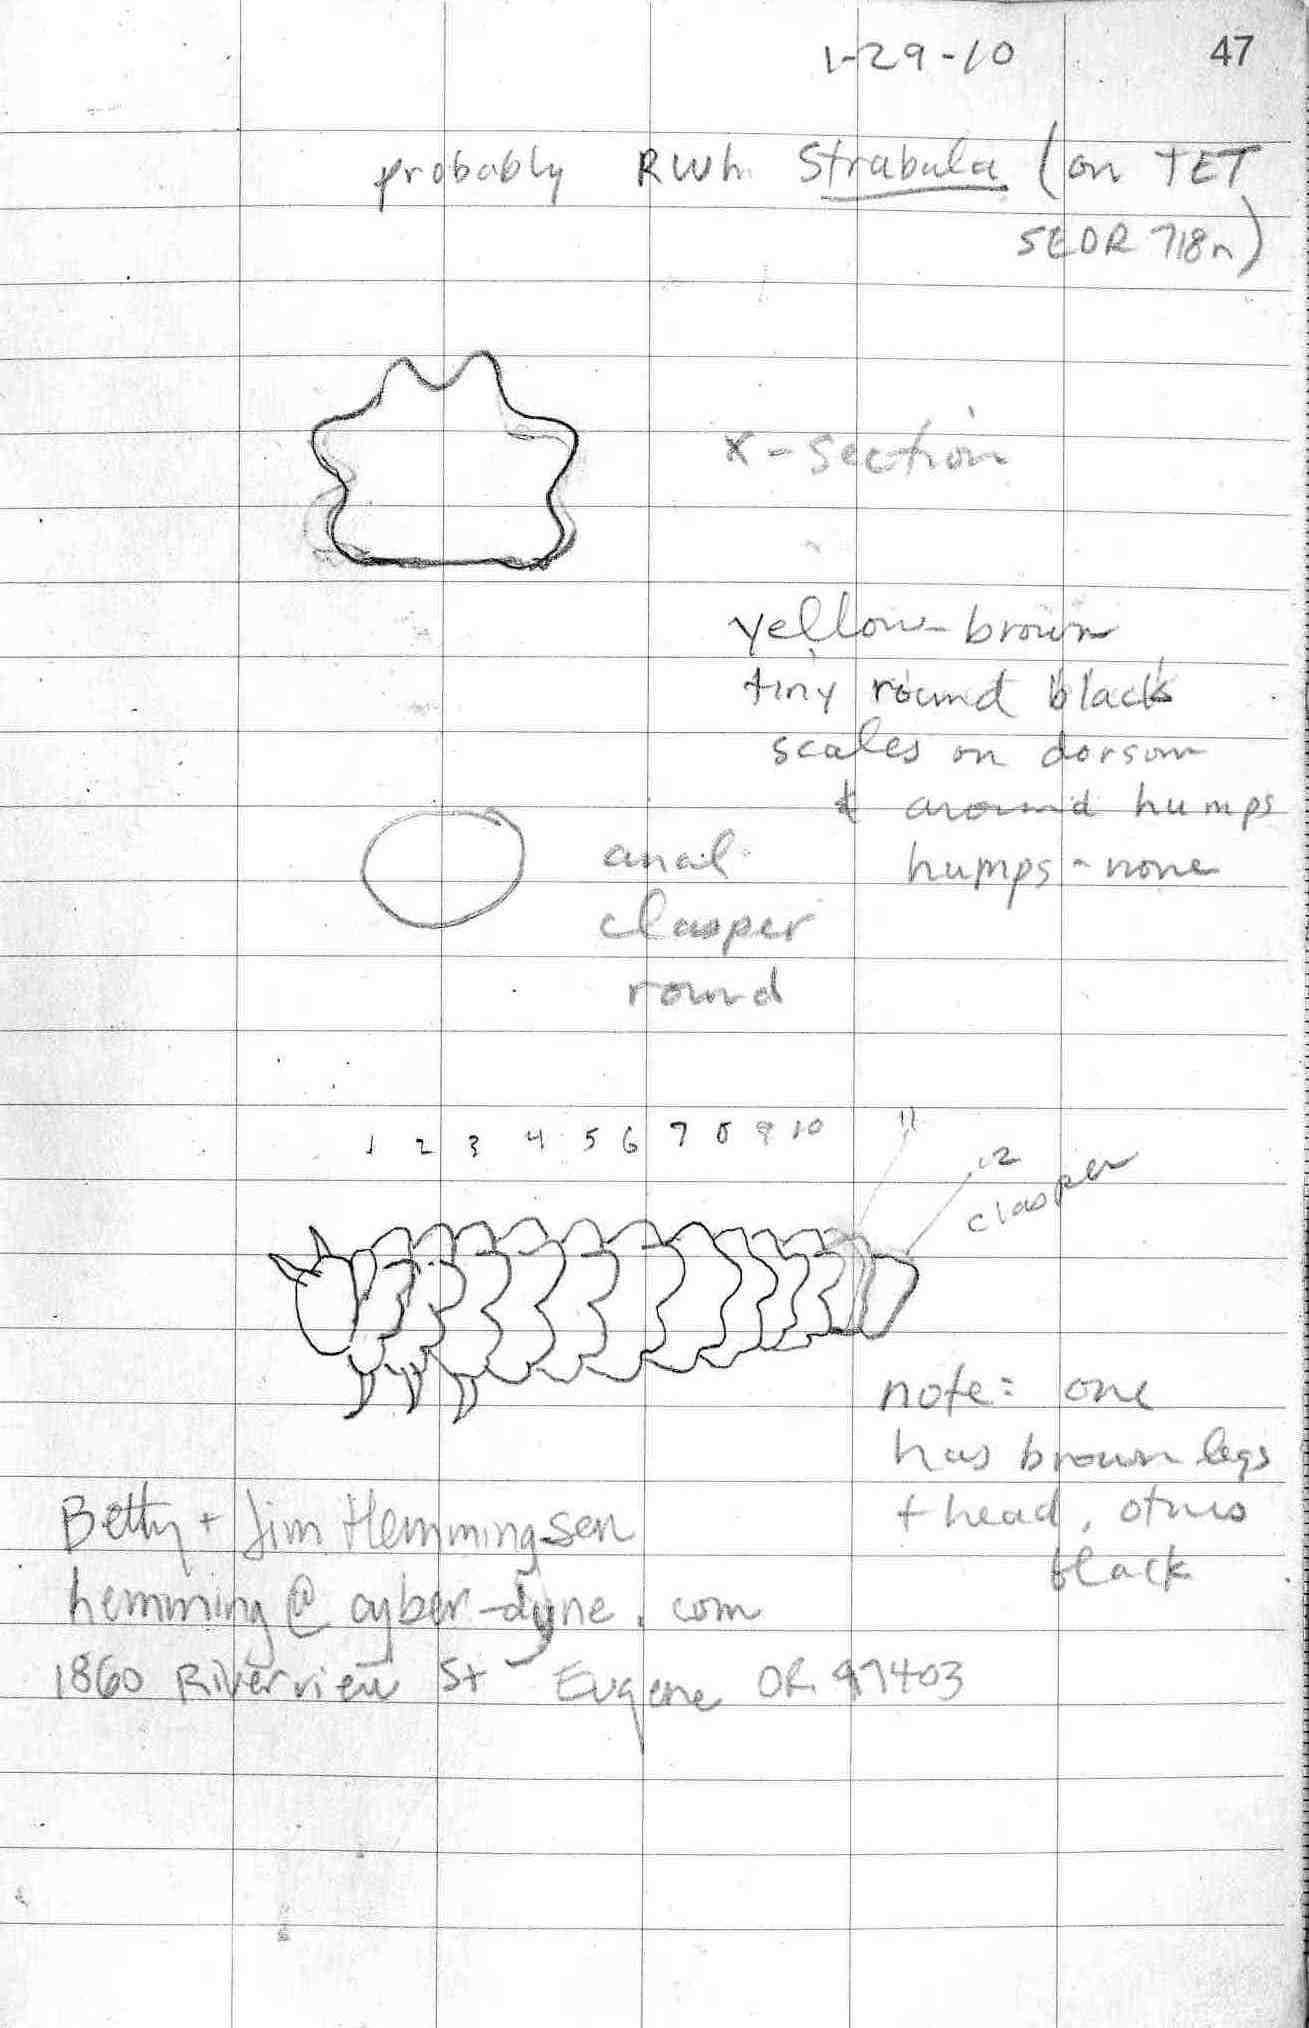 1-29-10 47
probably RWh Strabala (on TET
SEDR 718n)
x-section
yellow-brown
tiny round black
scales on dorsom
& around humps
humps - none
anal
clasper
round
1 2 3 4 5 6 7 8 9 10 11
12
clasper
note: one
has brown legs
+ head, others
black
Betty + Jim Hemmingsen
hemming@cyber-dyne.com
1860 Riverview St Eugene OR 97403